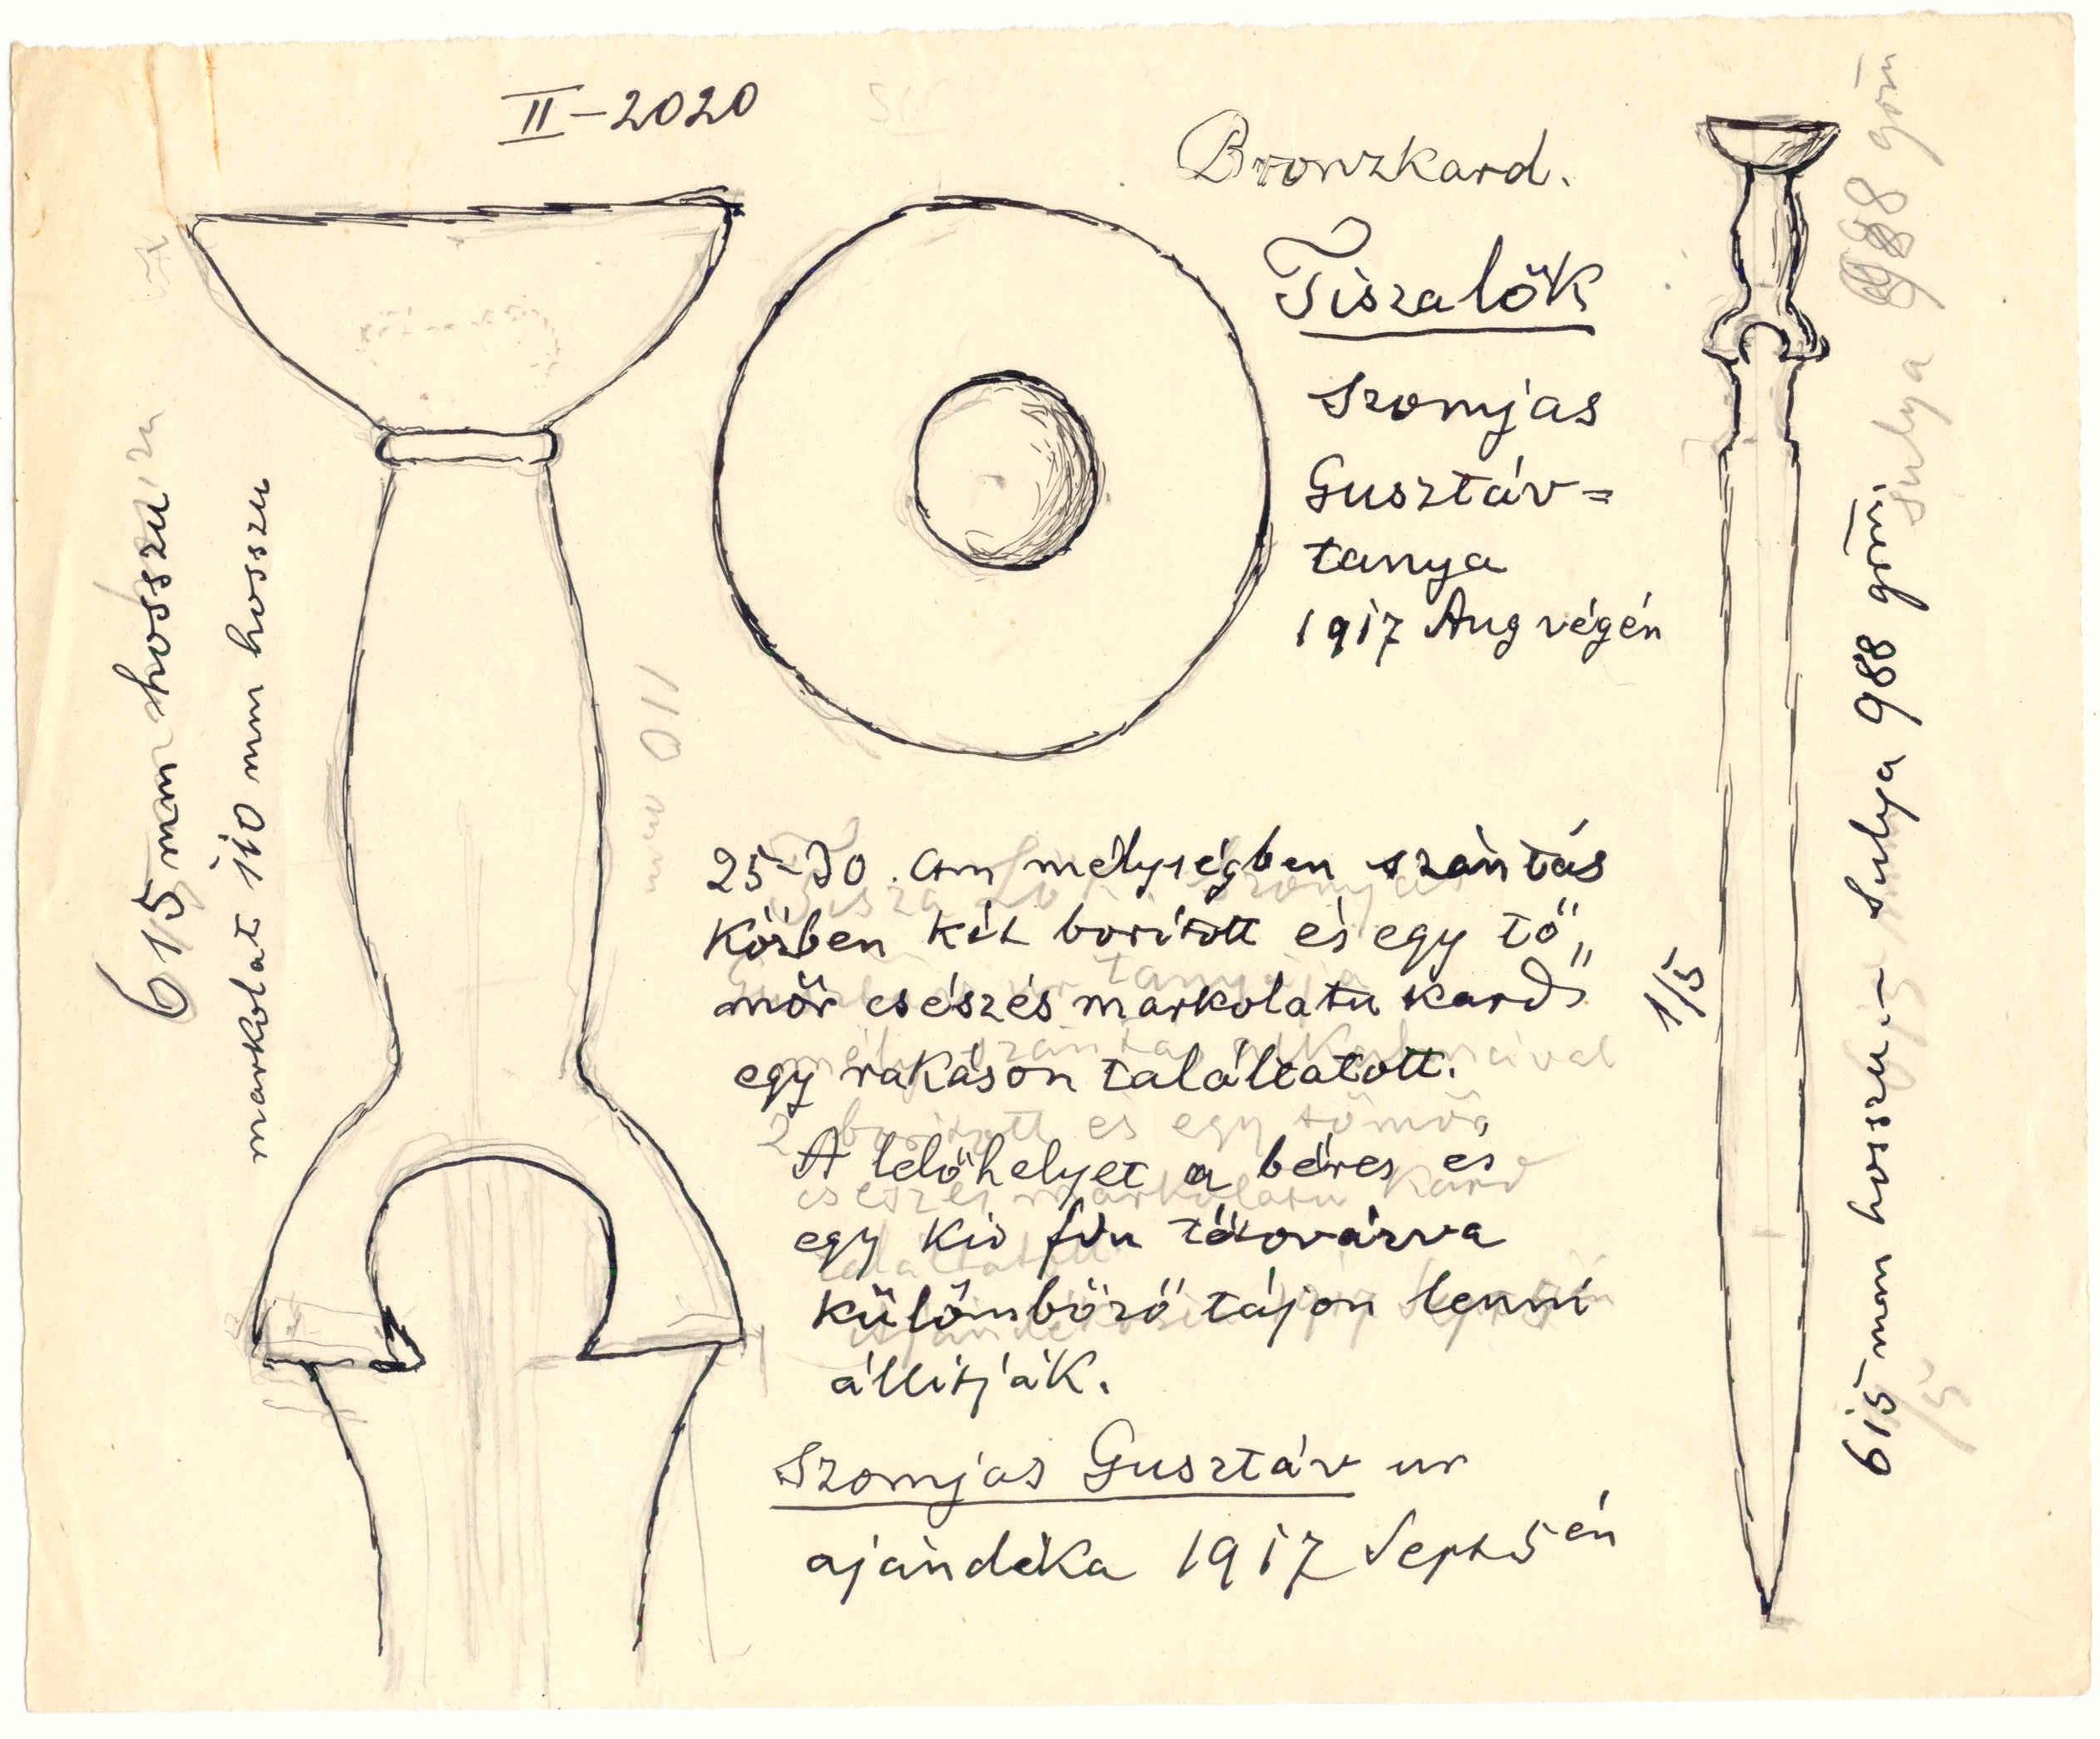 II-2020
Bronzkard.
Tiszalök
Szomjas
Gusztáv=
tanya
1917 Aug végén
615 mm hosszu
markolat 110 mm hosszu
110 mm
25-30. cm mélységben szántás
közben két borított és egy tö„
mör csészés markolatu kard"
egy rakáson találtatott.
A lelőhelyet a béres és
egy kis fiu tétovázva
külömböző tájon lenni
állitják.
Szomjas Gusztáv ur
ajándéka 1917 Sept 5én
1/5
615 mm hosszu.- Sulya 988 gőm
Sulya 988 gőm